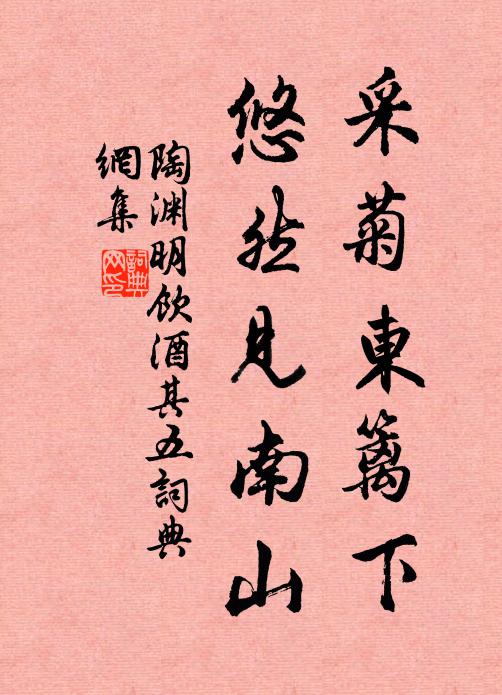 采菊東籬下
悠然見南山
陶渊明飲酒其五詞典
網集
詞典
网印